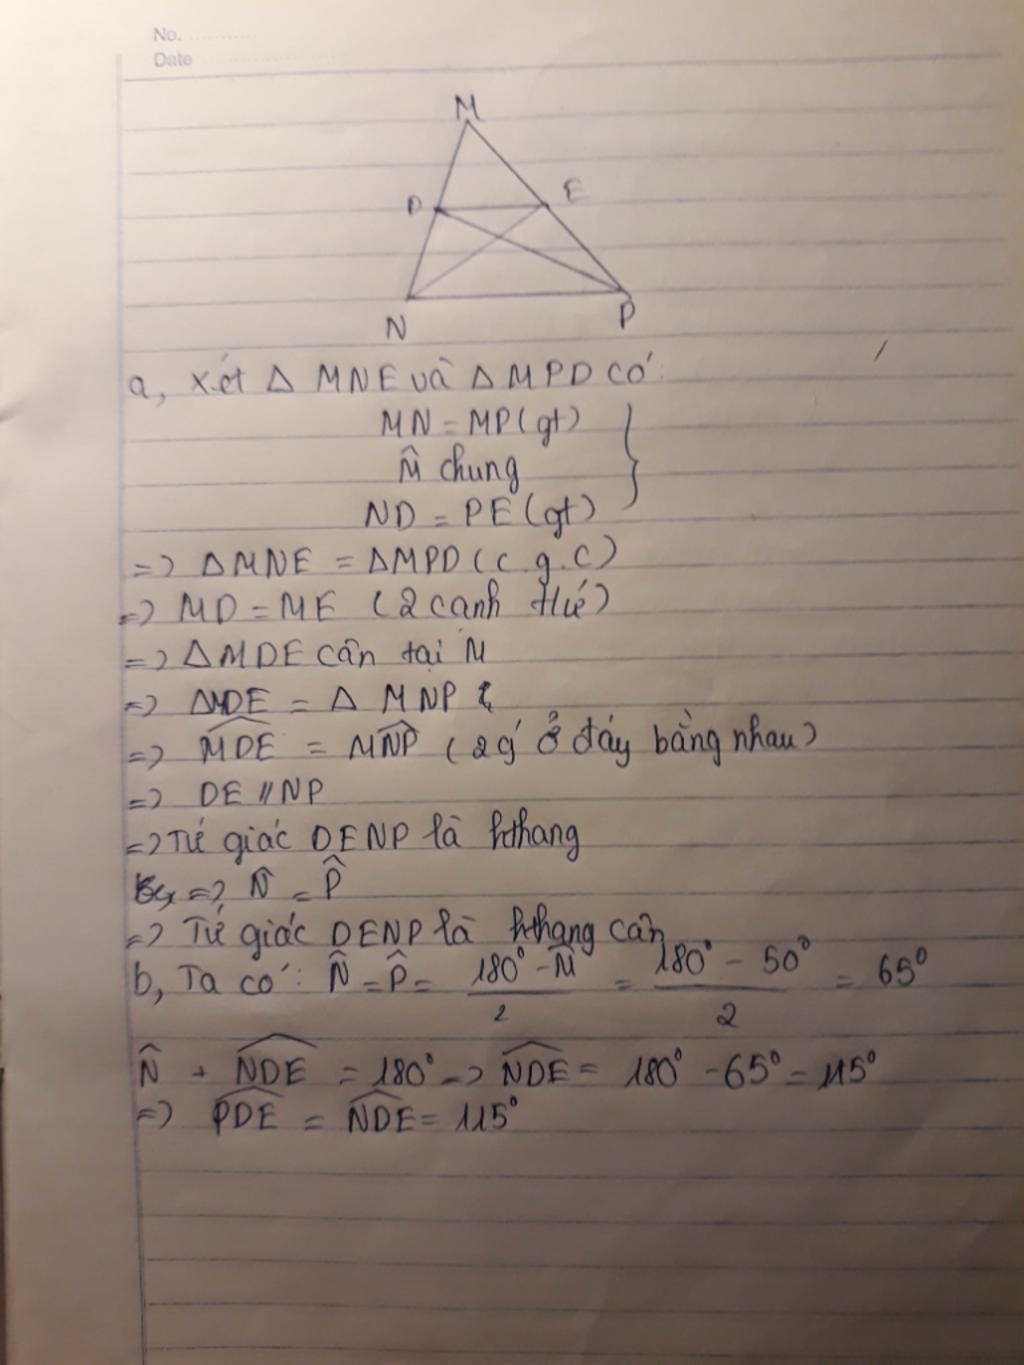 No.
Date
M
D
E
N
P
a, Xét Δ MNE và Δ MPD có:
MN = MP (gt)
M̂ chung
ND = PE (gt)
=> ΔMNE = ΔMPD (c.g.c)
=> MD = ME (2 canh tứ)
=> ΔMDE cân tại M
=> ΔMDE = Δ MNP
=> M̂D̂Ê = M̂N̂P̂ (2 góc ở đáy bằng nhau)
=> DE // NP
=> Tứ giác DENP là hthang
=> N̂ = P̂
=> Tứ giác DENP là hthang cân
b, Ta có: N̂ = P̂ = (180° - M̂)/2 = (180° - 50°)/2 = 65°
N̂ + N̂D̂Ê = 180° => N̂D̂Ê = 180° - 65° = 115°
=> P̂D̂Ê = N̂D̂Ê = 115°